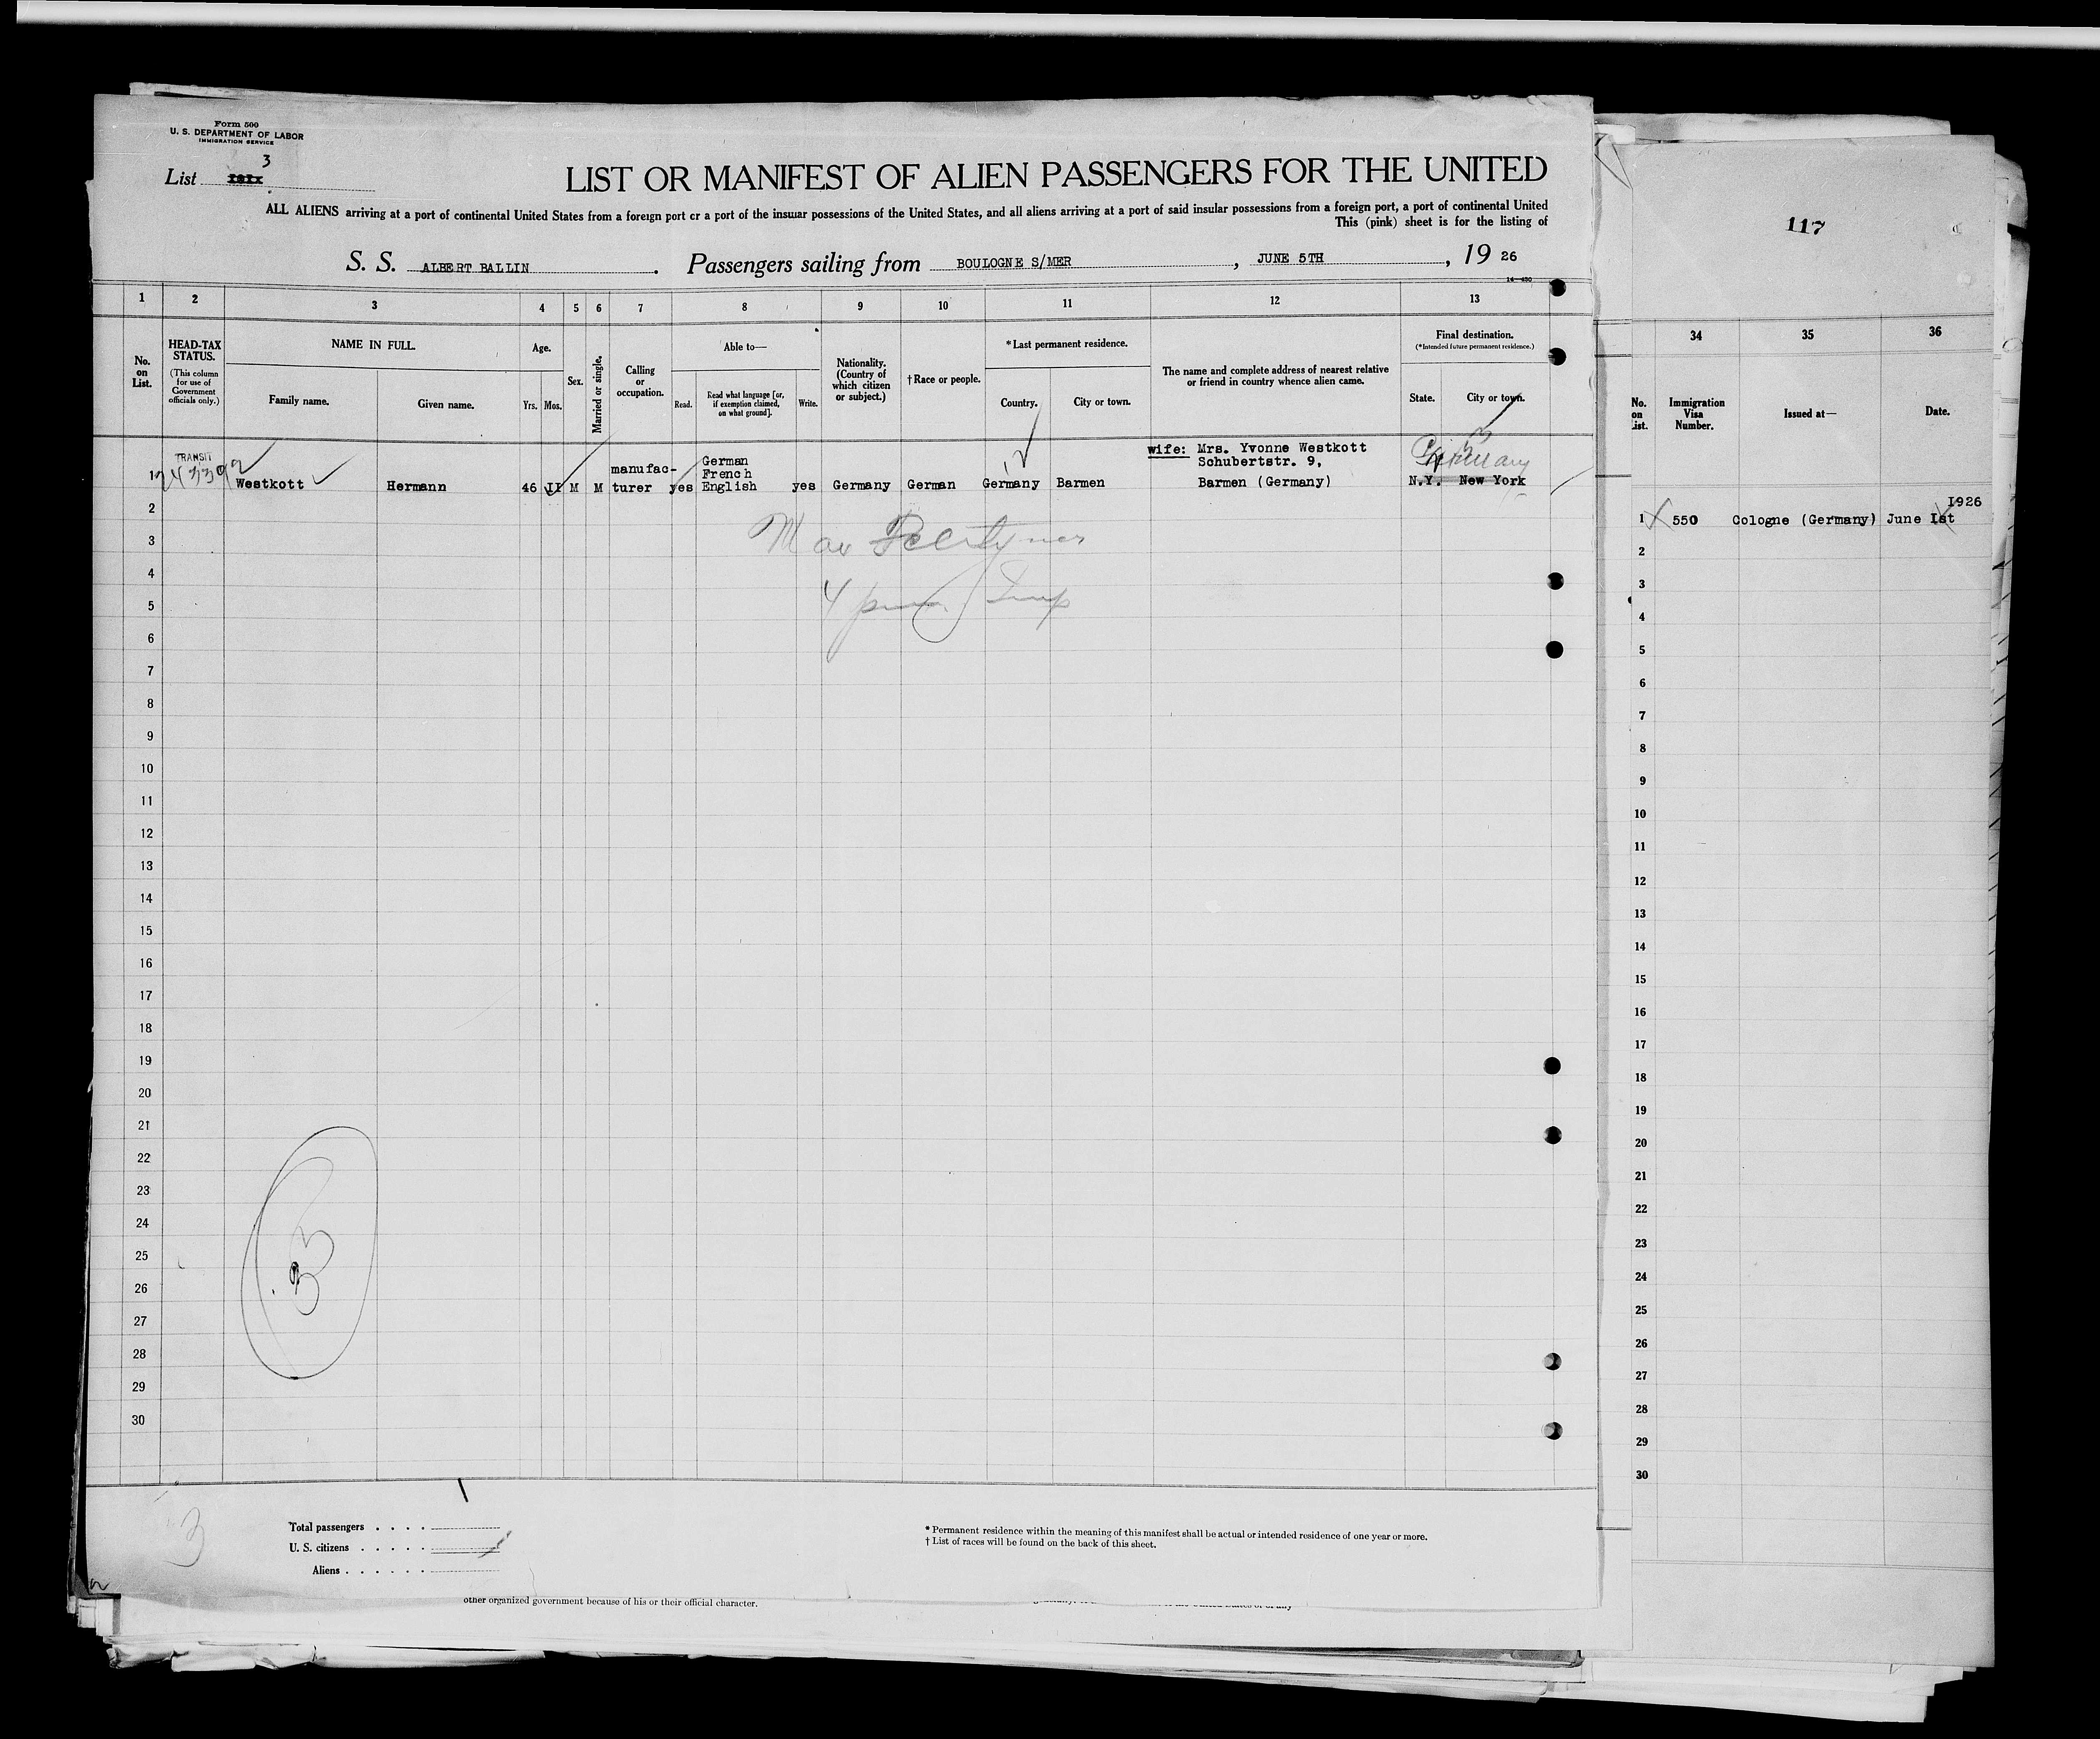 Form 500
U. S. DEPARTMENT OF LABOR
IMMIGRATION SERVICE
3
List
LIST OR MANIFEST OF ALIEN PASSENGERS FOR THE UNITED
ALL ALIENS arriving at a port of continental United States from a foreign port or a port of the insular possessions of the United States, and all aliens arriving at a port of said insular possessions from a foreign port, a port of continental United
This (pink) sheet is for the listing of
S. S. ALBERT BALLIN . Passengers sailing from BOULOGNE S/MER , JUNE 5TH , 19 26
14-430
1 2 3 4 5 6 7 8 9 10 11 12 13
No. on List.
HEAD-TAX STATUS.
(This column for use of Government officials only.)
NAME IN FULL.
Family name. Given name.
Age.
Yrs. Mos.
Sex.
Married or single.
Calling or occupation.
Able to—
Read. Read what language [or, if exemption claimed, on what ground]. Write.
Nationality. (Country of which citizen or subject.)
†Race or people.
*Last permanent residence.
Country. City or town.
The name and complete address of nearest relative or friend in country whence alien came.
Final destination.
(*Intended future permanent residence.)
State. City or town.
TRANSIT
wife: Mrs. Yvonne Westkott
German Schubertstr. 9,
manufac- French
1 Westkott Hermann 46 II M M turer yes English yes Germany German Germany Barmen Barmen (Germany) N.Y. New York
Germany
2
3
4
5
6
7
8
9
10
11
12
13
14
15
16
17
18
19
20
21
22
23
24
25
26
27
28
29
30
33
3
Total passengers . . . .
U. S. citizens . . . . .
Aliens . . . . . .
* Permanent residence within the meaning of this manifest shall be actual or intended residence of one year or more.
† List of races will be found on the back of this sheet.
other organized government because of his or their official character.
117
34 35 36
No. on List.
Immigration Visa Number.
Issued at—
Date.
1926
1 550 Cologne (Germany) June Ist
2
3
4
5
6
7
8
9
10
11
12
13
14
15
16
17
18
19
20
21
22
23
24
25
26
27
28
29
30